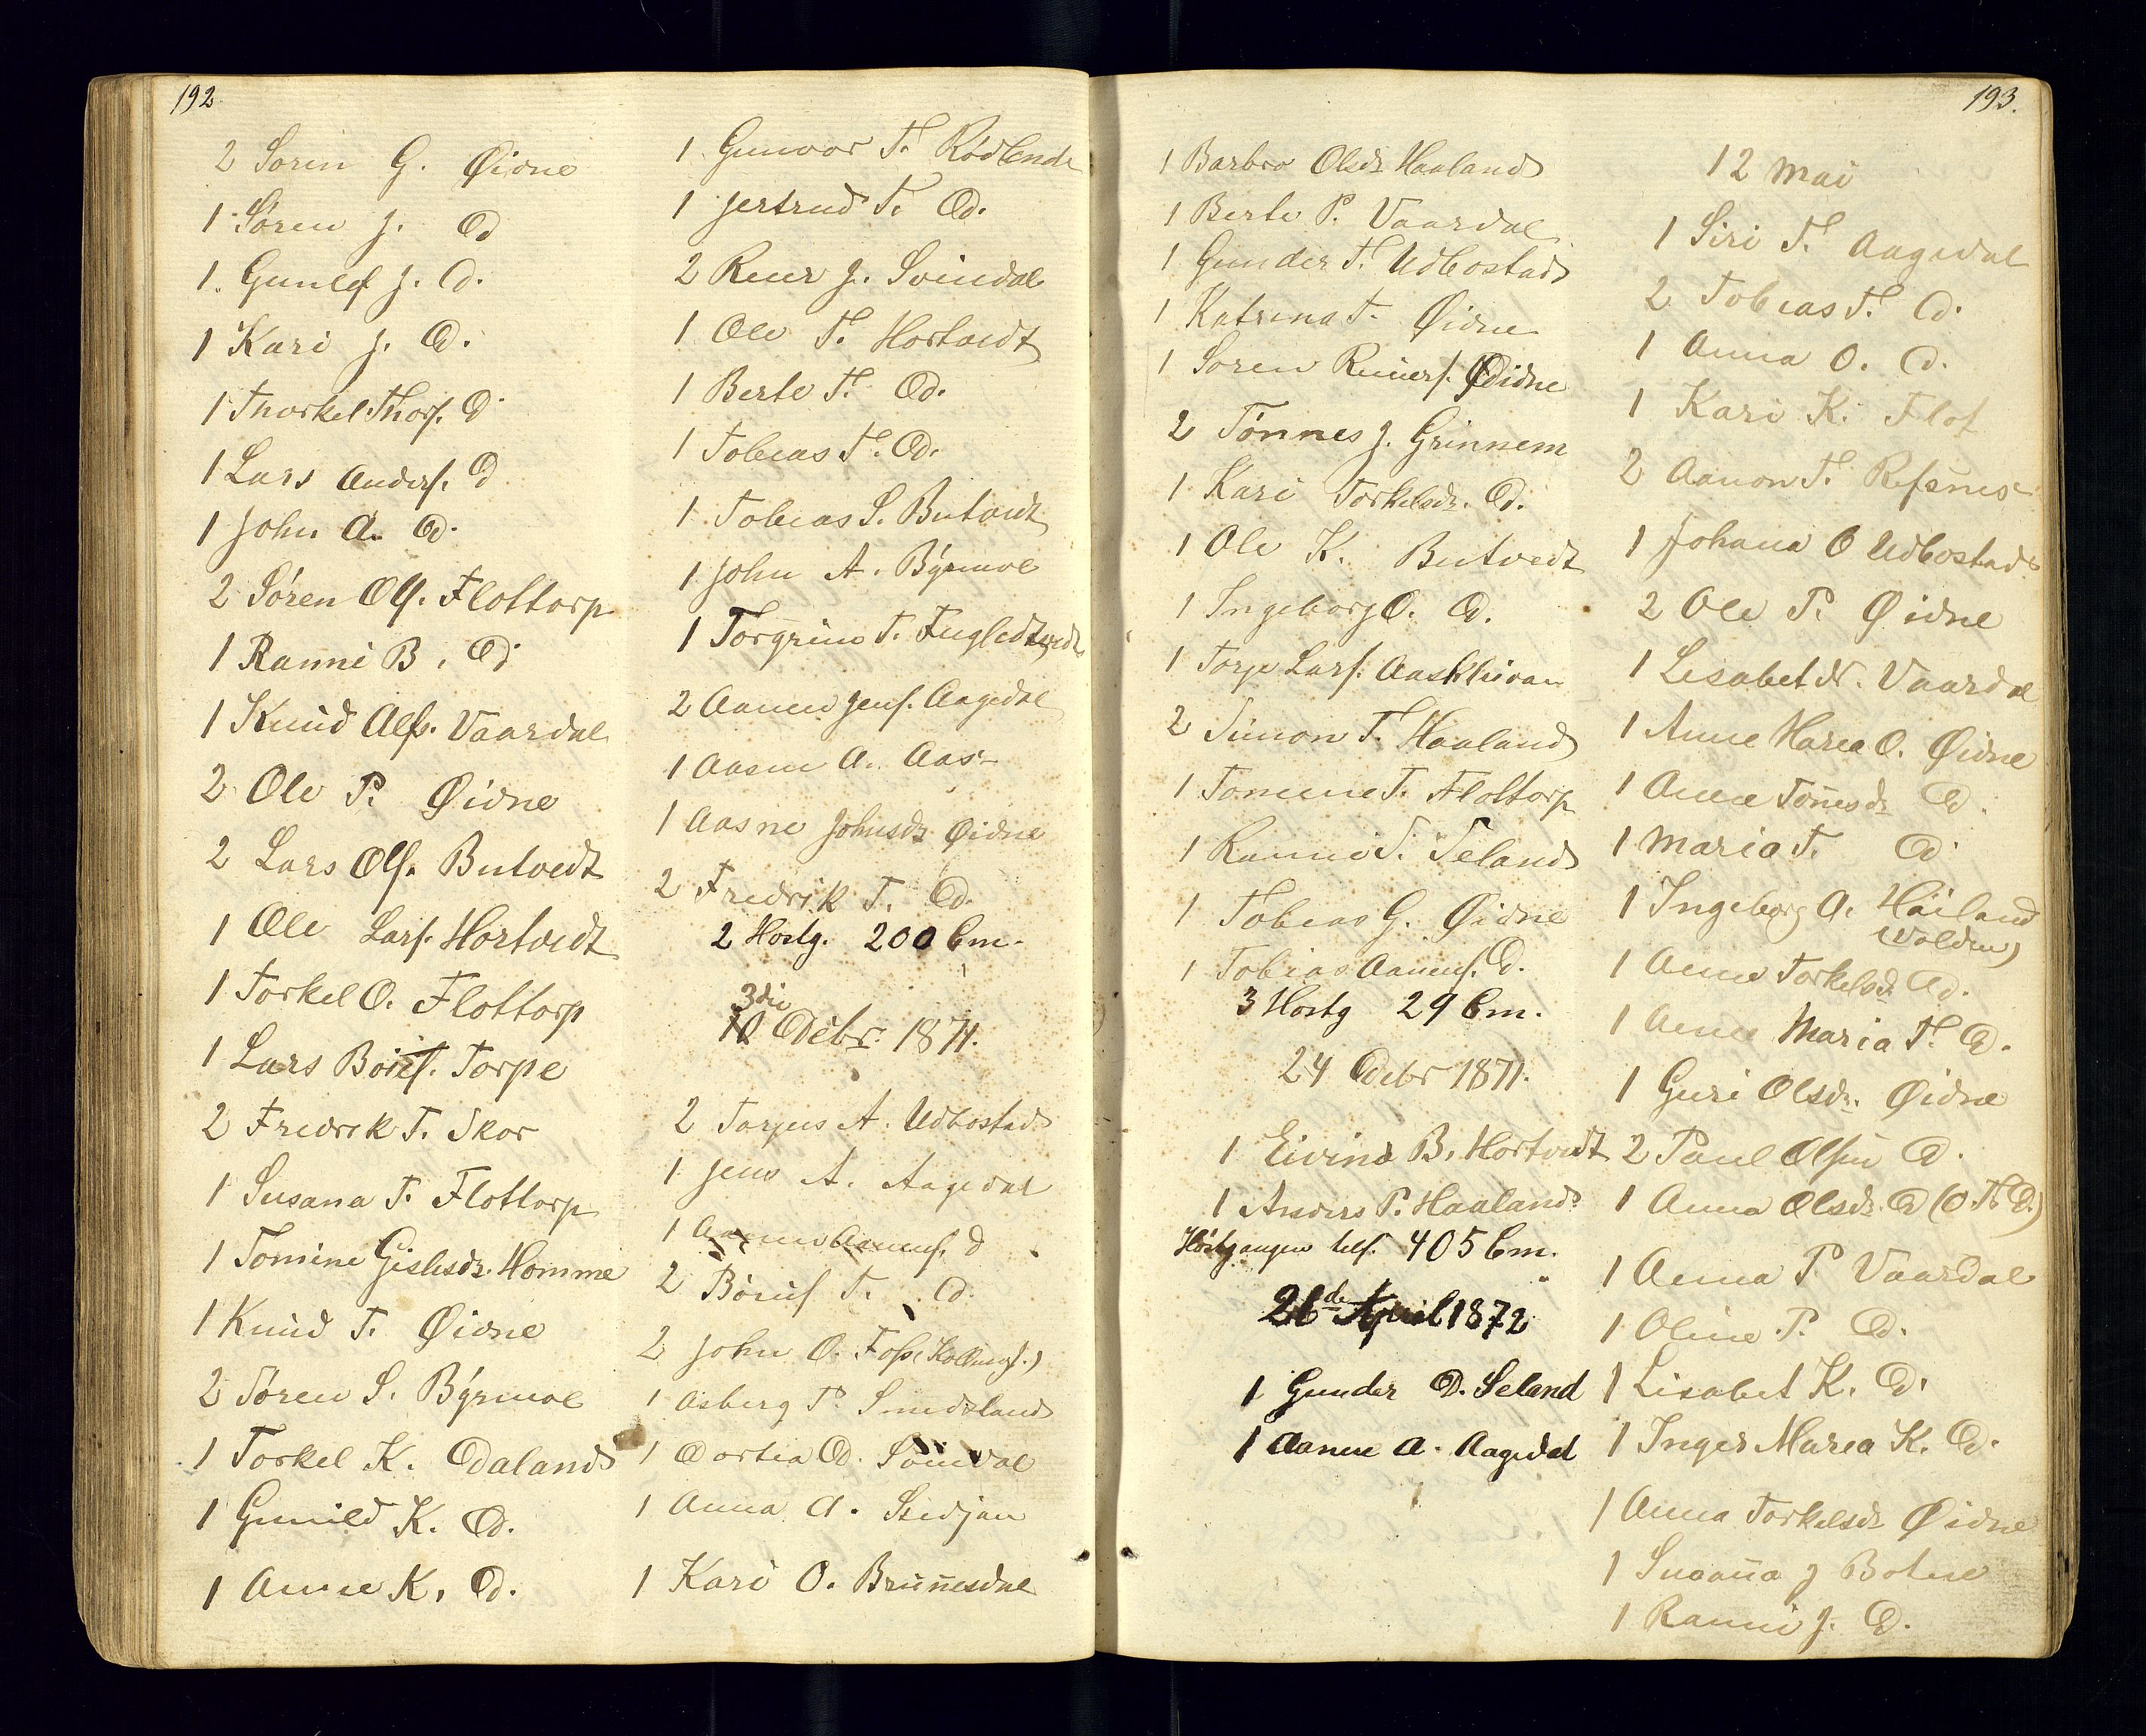 192
2 Soren G. Øidne
1 Søren J. D
1. Gunlef J. D.
1 Kari J. D.
1 Thorkel Thors. D
1 Lars Anders. D
1 John A. D.
2 Søren Ols. Flottorp
1 Ranni B. D
1 Knud Alfs. Vaardal
2 Ole P. Øidne
2 Lars Ols. Butvedt
1 Ole Lars. Hortvedt
1 Torkel O. Flottorp
1 Lars Börjes. Torpe
2 Fredrek T. Skor
1 Susana T. Flottorp
1 Tomine Gislesdr. Homme
1 Knud T. Øidne
2 Søren S. Byrmoe
1 Torkel K. Odaland
1 Gunild K. D.
1 Anne K. D.
1 Gunvor T. Rødlende
1 Jertrud T. D.
2 Reier J. Svindal
1 Ole T. Hortvedt
1 Berte T. D.
1 Tobias T. D.
1 Tobias S. Butvedt
1 John A. Byrmoe
1 Torgrim T. Fugledtvedt
2 Aanen Jens. Aagedal
1 Aasne A. Aas
1 Aasne Johnsdr Øidne
2 Fredrik T. D.
2 Hostg. 200 Cm.
3die
10 Debr. 1871.
2 Torjus A. Udbostad
1 Jens A. Aagedal
1 Aanen Aanens. D
2 Börius T. D.
2 John O. Foss (Kollungs.)
1 Asberg P. Smedsland
1 Dortea D. Svindal
1 Anna A. Stedjan
1 Kari O. Brunnesdal
193.
1 Barbro Olsdr Haaland
1 Berte P. Vaardal
1 Gunder T. Udbostad
1 Katrina T. Øidne
1 Soren Reiers. Øidne
2 Tönnes J. Grinnem
1 Kari Torkelsdr. D.
1 Ole K. Butvedt
1 Ingeborg O. D.
1 Torje Lars. Aasklievan
2 Simon T. Haaland
1 Tomine T. Flottorp
1 Ranni S. Seland
1 Tobias G. Øidne
1 Tobias Aanens. D.
3 Hostg 29 Cm.
24 Debr 1871.
1 Eivind B. Hortvedt
1 Anders P. Haaland
Höstgangen tils. 405 Cm.
21de April 1872
1 Gunder D. Seland
1 Aanen A. Aagedal
12 Mai
1 Siri T. Aagedal
2 Tobias T. D.
1 Anna O. D.
1 Kari K. Flot
2 Aanon T. Refsnes
1 Johana O Udbostad
2 Ole P. Øidne
1 Lisabet N. Vaardal
1 Anne Marea O. Øidne
1 Anne Tonnesdr D.
1 Maria T. D
1 Ingeborg A. Håiland
(Volden)
1 Anne Torkelsdr D.
1 Anne Maria T. D.
1 Guri Olsdr. Øidne
2 Paul Olsen D.
1 Anna Olsdr. D (O. T. D.)
1 Anna P. Vaardal
1 Oline P. D.
1 Lisabet K. D.
1 Inger Marea K. D.
1 Anna Torkelsdr Øidne
1 Susanna J Botne
1 Ranni J. D.